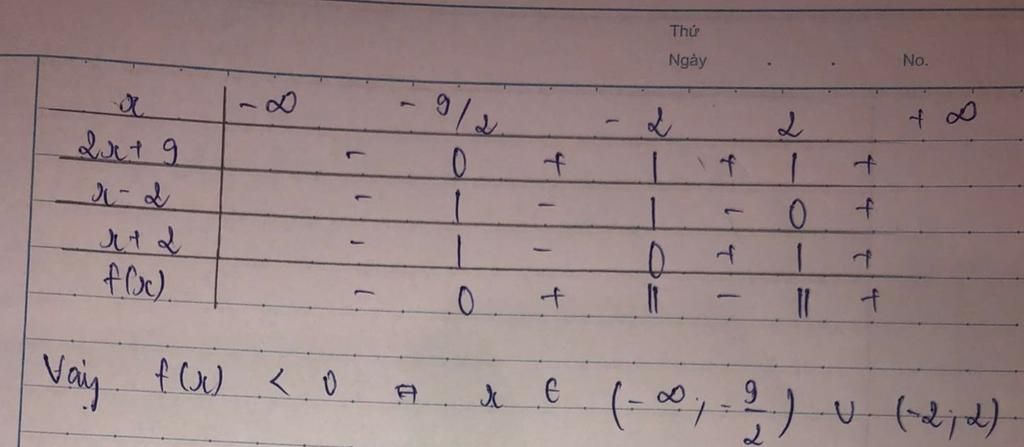 Thứ
Ngày . . No.
x -∞ -9/2 -2 2 +∞
2x+9 - 0 + | + | +
x-2 - | - | - 0 +
x+2 - | - 0 + | +
f(x) - 0 + || - || +
Vậy f(x) < 0 ⇔ x ∈ (-∞; -9/2) ∪ (-2; 2)